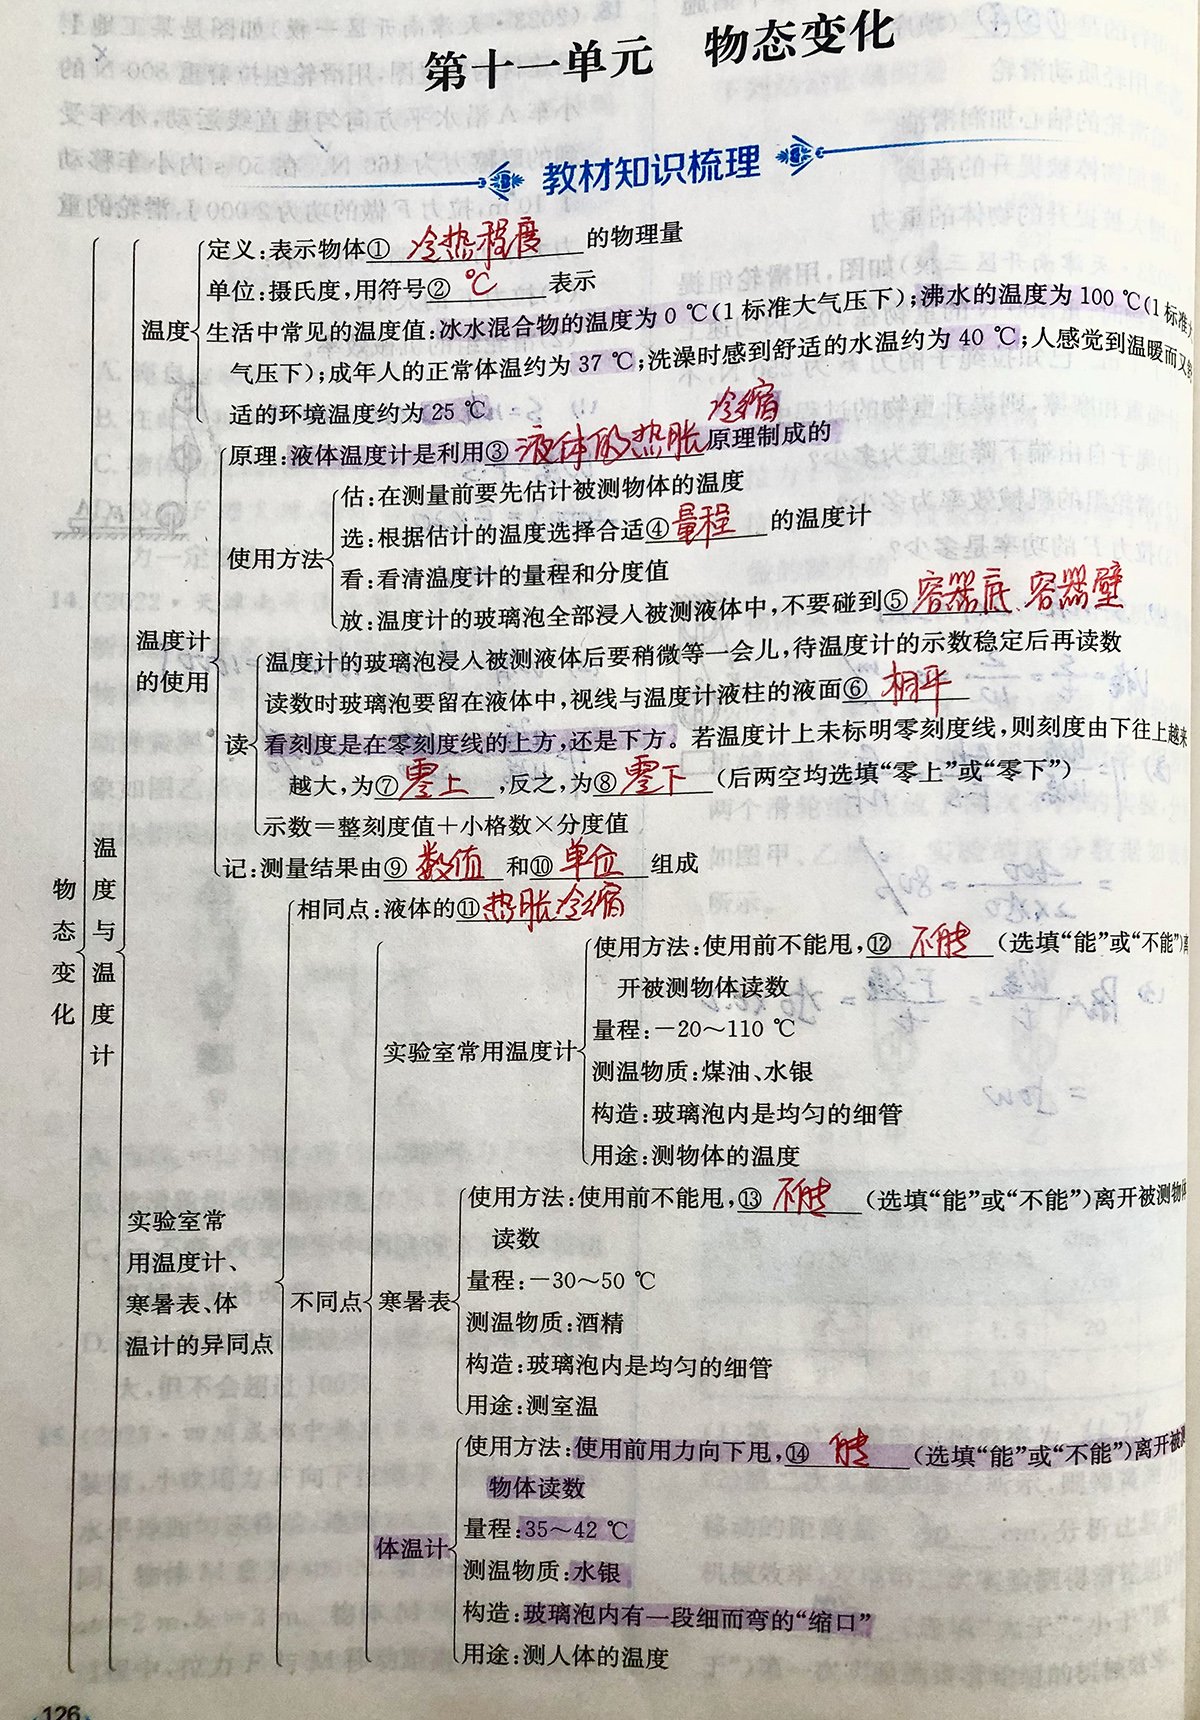 第十一单元 物态变化
教材知识梳理
定义:表示物体① 冷热程度 的物理量
单位:摄氏度,用符号② ℃ 表示
温度
生活中常见的温度值:冰水混合物的温度为0 ℃(1标准大气压下);沸水的温度为100 ℃(1标准大
气压下);成年人的正常体温约为37 ℃;洗澡时感到舒适的水温约为40 ℃;人感觉到温暖而又舒
适的环境温度约为25 ℃
冷缩
原理:液体温度计是利用③液体的热胀原理制成的
估:在测量前要先估计被测物体的温度
选:根据估计的温度选择合适④量程 的温度计
使用方法
看:看清温度计的量程和分度值
放:温度计的玻璃泡全部浸入被测液体中,不要碰到⑤容器底 容器壁
温度计
的使用
温度计的玻璃泡浸入被测液体后要稍微等一会儿,待温度计的示数稳定后再读数
读数时玻璃泡要留在液体中,视线与温度计液柱的液面⑥ 相平
读
看刻度是在零刻度线的上方,还是下方。若温度计上未标明零刻度线,则刻度由下往上越来
越大,为⑦零上 ,反之,为⑧零下 (后两空均选填“零上”或“零下”)
示数=整刻度值+小格数×分度值
记:测量结果由⑨ 数值 和⑩ 单位 组成
物态变化
温度与温度计
相同点:液体的⑪热胀冷缩
使用方法:使用前不能甩,⑫ 不能 (选填“能”或“不能”)离
开被测物体读数
量程:-20～110 ℃
实验室常用温度计
测温物质:煤油、水银
构造:玻璃泡内是均匀的细管
用途:测物体的温度
使用方法:使用前不能甩,⑬ 不能 (选填“能”或“不能”)离开被测物体
读数
实验室常
用温度计、
寒暑表、体
温计的异同点
量程:-30～50 ℃
不同点
寒暑表
测温物质:酒精
构造:玻璃泡内是均匀的细管
用途:测室温
使用方法:使用前用力向下甩,⑭ 能 (选填“能”或“不能”)离开被测
物体读数
量程:35～42 ℃
体温计
测温物质:水银
构造:玻璃泡内有一段细而弯的“缩口”
用途:测人体的温度
126